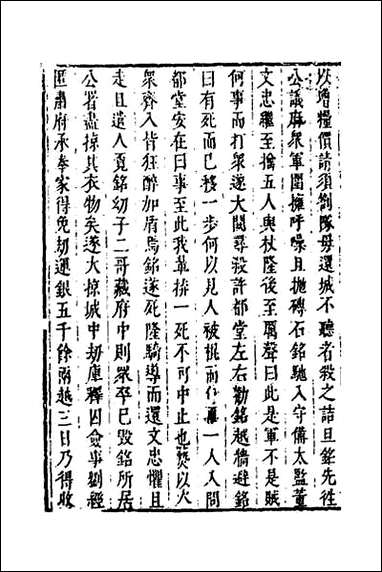 攻增糧價請須劄隊毋還城不聽者殺之詰旦銘先往
公議府衆軍圍擁呼噪且拋磚石銘馳入守備太監董
文忠繼至擒五人與杖隆後至厲聲曰此是軍不是賊
何事而打衆遂大鬨尋殺許都堂左右勸銘越牆避銘
曰有死而已移一步何以見人被執而仆一人入問
都堂安在曰事至此我輩拚一死不可中止也爇以火
衆齊入皆狂醉加盾焉銘遂死隆騎導而還文忠懼且
走且遣人覓銘幼子二哥藏府中則衆卒已毀銘所居
公署盡掠其衣物矣遂大掠城中劫庫釋囚僉事劉經
匿肅府承奉家得免刼運銀五千餘兩越三日乃得收